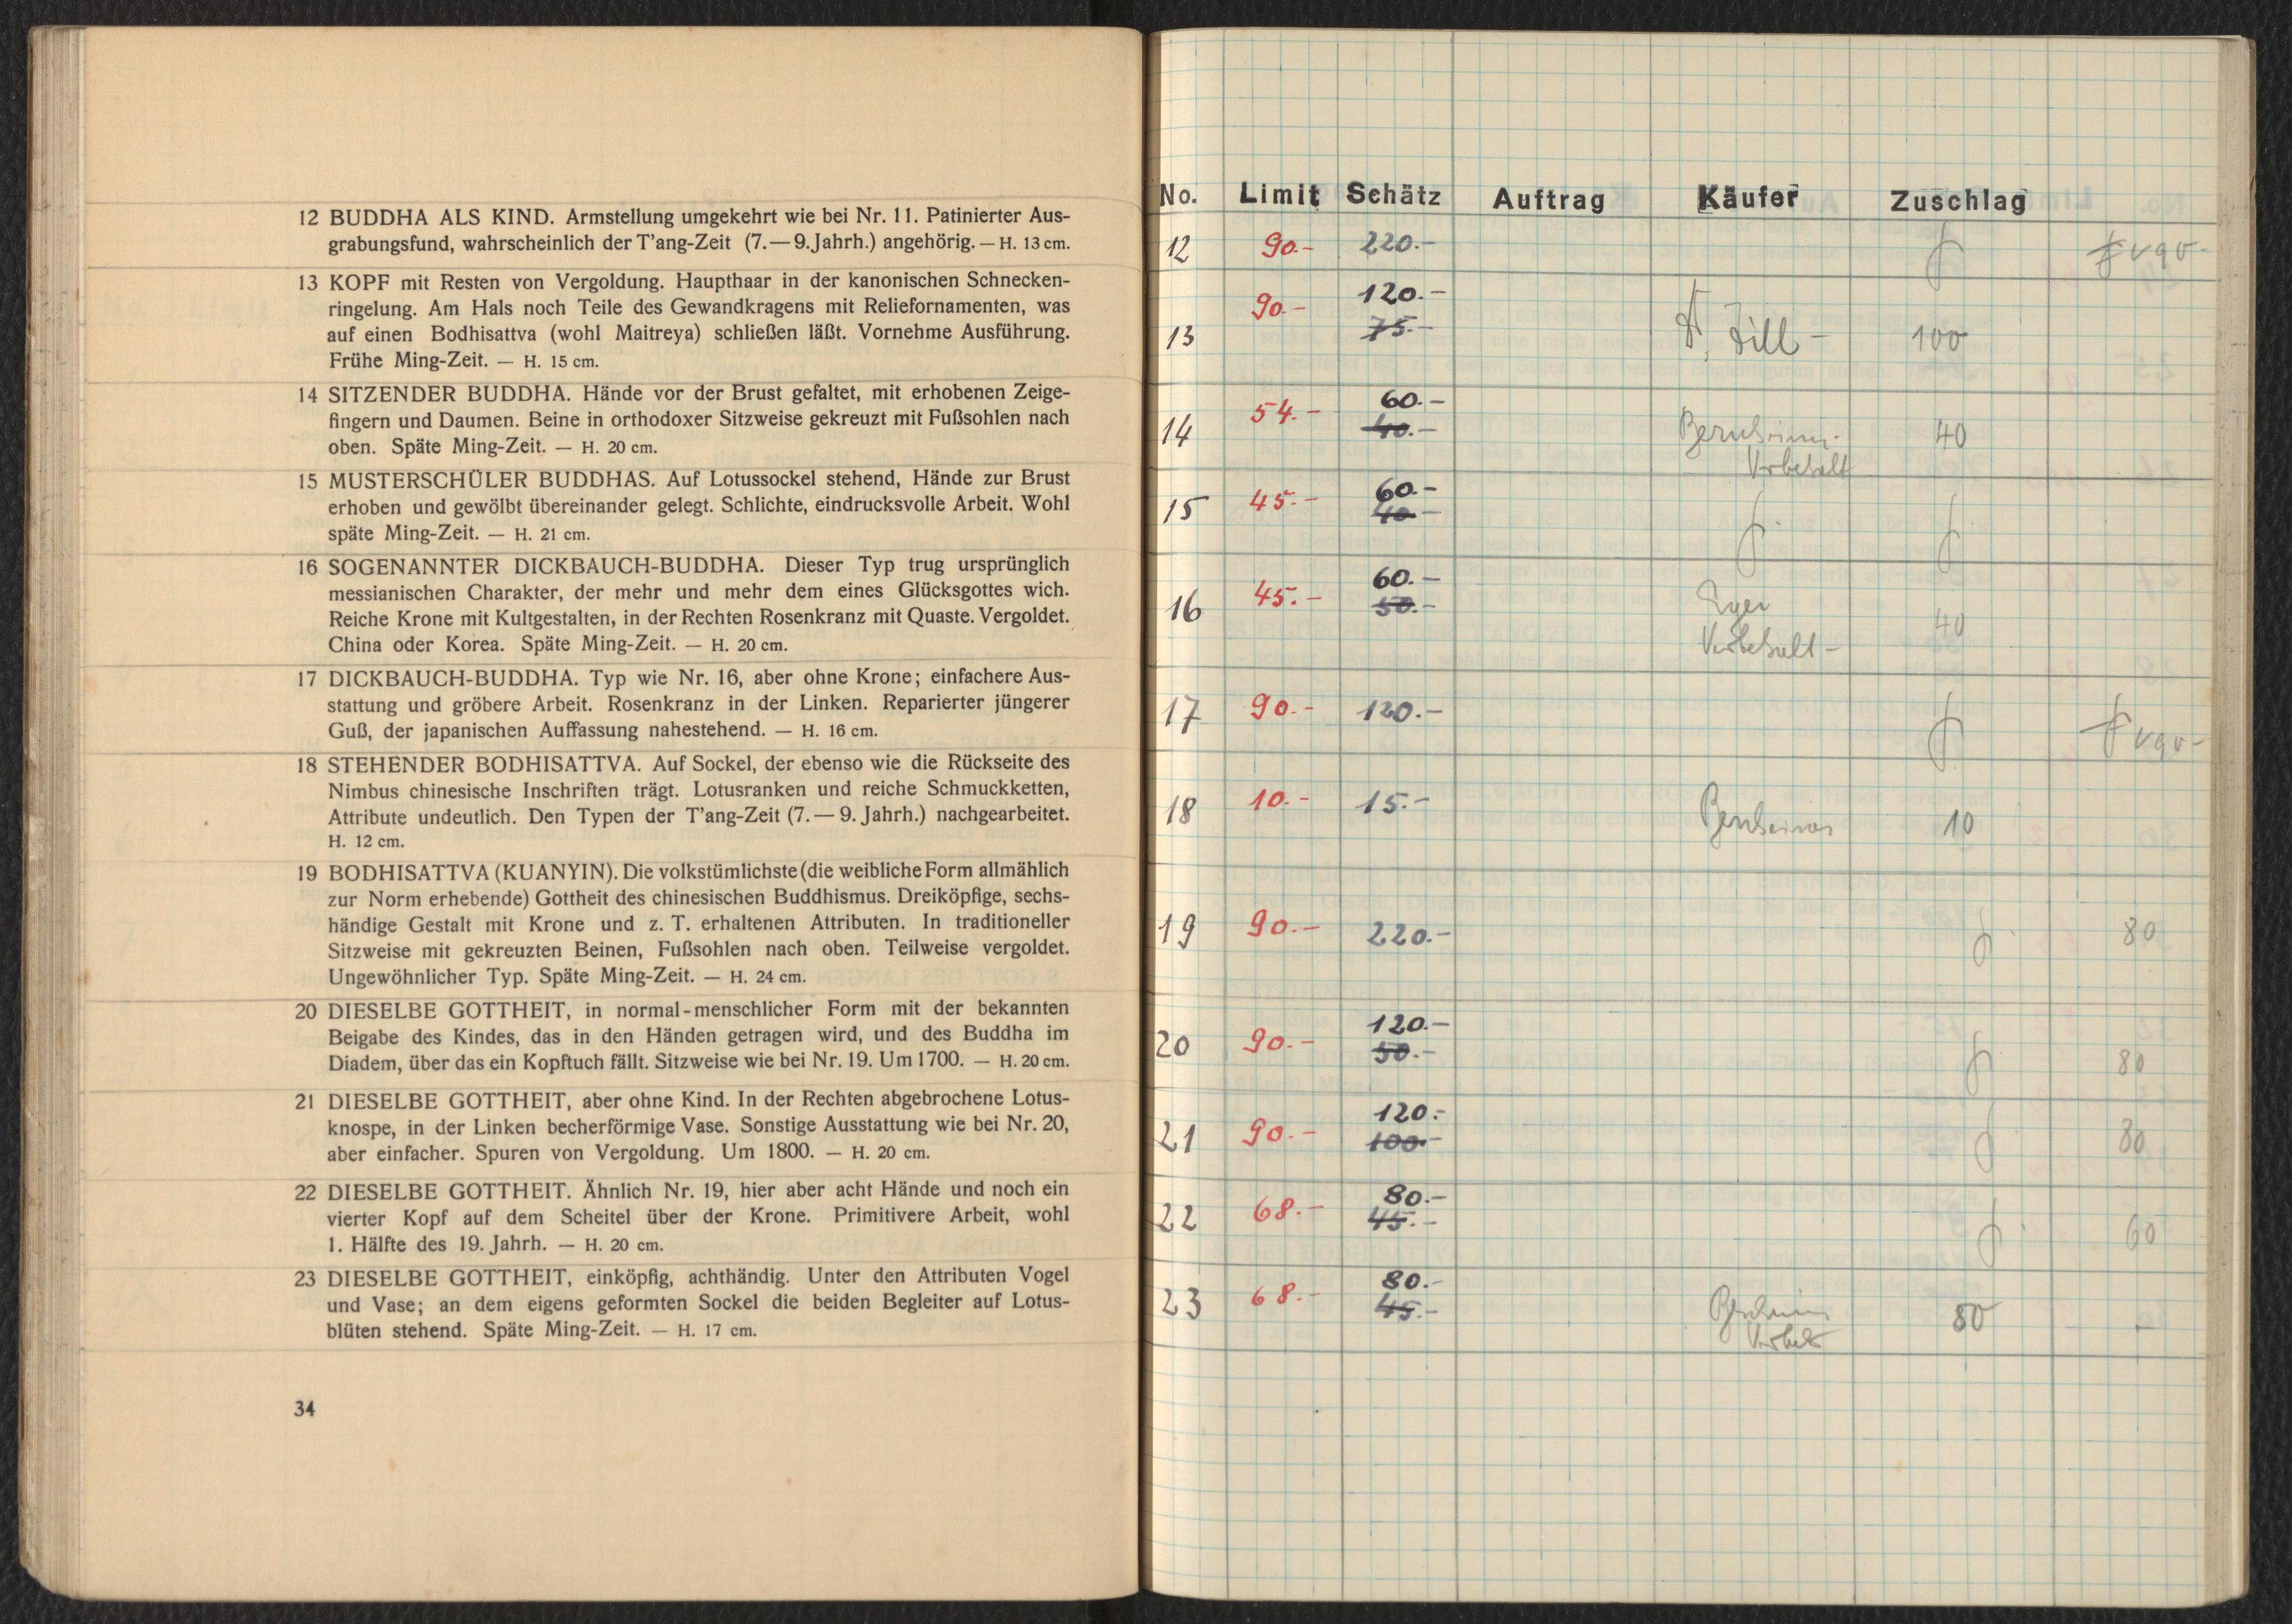 12 BUDDHA ALS KIND. Armstellung umgekehrt wie bei Nr. 11. Patinierter Aus-
grabungsfund, wahrscheinlich der T'ang-Zeit (7.—9. Jahrh.) angehörig. — H. 13 cm.
13 KOPF mit Resten von Vergoldung. Haupthaar in der kanonischen Schnecken-
ringelung. Am Hals noch Teile des Gewandkragens mit Reliefornamenten, was
auf einen Bodhisattva (wohl Maitreya) schließen läßt. Vornehme Ausführung.
Frühe Ming-Zeit. — H. 15 cm.
14 SITZENDER BUDDHA. Hände vor der Brust gefaltet, mit erhobenen Zeige-
fingern und Daumen. Beine in orthodoxer Sitzweise gekreuzt mit Fußsohlen nach
oben. Späte Ming-Zeit. — H. 20 cm.
15 MUSTERSCHÜLER BUDDHAS. Auf Lotussockel stehend, Hände zur Brust
erhoben und gewölbt übereinander gelegt. Schlichte, eindrucksvolle Arbeit. Wohl
späte Ming-Zeit. — H. 21 cm.
16 SOGENANNTER DICKBAUCH-BUDDHA. Dieser Typ trug ursprünglich
messianischen Charakter, der mehr und mehr dem eines Glücksgottes wich.
Reiche Krone mit Kultgestalten, in der Rechten Rosenkranz mit Quaste. Vergoldet.
China oder Korea. Späte Ming-Zeit. — H. 20 cm.
17 DICKBAUCH-BUDDHA. Typ wie Nr. 16, aber ohne Krone; einfachere Aus-
stattung und gröbere Arbeit. Rosenkranz in der Linken. Reparierter jüngerer
Guß, der japanischen Auffassung nahestehend. — H. 16 cm.
18 STEHENDER BODHISATTVA. Auf Sockel, der ebenso wie die Rückseite des
Nimbus chinesische Inschriften trägt. Lotusranken und reiche Schmuckketten,
Attribute undeutlich. Den Typen der T'ang-Zeit (7.—9. Jahrh.) nachgearbeitet.
H. 12 cm.
19 BODHISATTVA (KUANYIN). Die volkstümlichste (die weibliche Form allmählich
zur Norm erhebende) Gottheit des chinesischen Buddhismus. Dreiköpfige, sechs-
händige Gestalt mit Krone und z. T. erhaltenen Attributen. In traditioneller
Sitzweise mit gekreuzten Beinen, Fußsohlen nach oben. Teilweise vergoldet.
Ungewöhnlicher Typ. Späte Ming-Zeit. — H. 24 cm.
20 DIESELBE GOTTHEIT, in normal-menschlicher Form mit der bekannten
Beigabe des Kindes, das in den Händen getragen wird, und des Buddha im
Diadem, über das ein Kopftuch fällt. Sitzweise wie bei Nr. 19. Um 1700. — H. 20 cm.
21 DIESELBE GOTTHEIT, aber ohne Kind. In der Rechten abgebrochene Lotus-
knospe, in der Linken becherförmige Vase. Sonstige Ausstattung wie bei Nr. 20,
aber einfacher. Spuren von Vergoldung. Um 1800. — H. 20 cm.
22 DIESELBE GOTTHEIT. Ähnlich Nr. 19, hier aber acht Hände und noch ein
vierter Kopf auf dem Scheitel über der Krone. Primitivere Arbeit, wohl
1. Hälfte des 19. Jahrh. — H. 20 cm.
23 DIESELBE GOTTHEIT, einköpfig, achthändig. Unter den Attributen Vogel
und Vase; an dem eigens geformten Sockel die beiden Begleiter auf Lotus-
blüten stehend. Späte Ming-Zeit. — H. 17 cm.
34
No. Limit Schätz Auftrag Käufer Zuschlag
12 90.- 220.-
120.-
13 90.- 75.- Dill - 100
60.-
14 54.- 40.- 40
Vorbehalt
60.-
15 45.- 40.-
60.-
16 45.- 50.- 40
Vorbehalt -
17 90.- 120.-
18 10.- 15.- 10
19 90.- 220.- 80
120.-
20 90.- 50.- 80
120.-
21 90.- 100.- 80
80.-
22 68.- 45.- 60
80.-
23 68.- 45.- 50 -